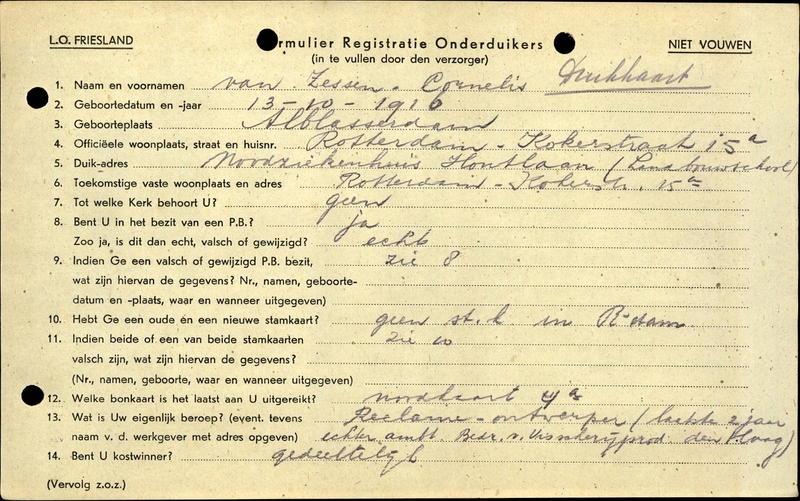 L.O. FRIESLAND
rmulier Registratie Onderduikers
NIET VOUWEN
(in te vullen door den verzorger)
1. Naam en voornamen van Zessen. Cornelis Duikkaart
2. Geboortedatum en -jaar 13-10-1916
3. Geboorteplaats Alblasserdam
4. Officiëele woonplaats, straat en huisnr. Rotterdam - Kokerstraat 15a
5. Duik-adres Noodziekenhuis Houtlaan (Landbouwschool)
6. Toekomstige vaste woonplaats en adres Rotterdam - Kokerstr. 15a
7. Tot welke Kerk behoort U? geen
8. Bent U in het bezit van een P.B.? ja
Zoo ja, is dit dan echt, valsch of gewijzigd? echt
9. Indien Ge een valsch of gewijzigd P.B. bezit, zie 8
wat zijn hiervan de gegevens? Nr., namen, geboorte-
datum en -plaats, waar en wanneer uitgegeven)
10. Hebt Ge een oude én een nieuwe stamkaart? geen st.k in R'dam
11. Indien beide of een van beide stamkaarten zie 10
valsch zijn, wat zijn hiervan de gegevens?
(Nr., namen, geboorte, waar en wanneer uitgegeven)
12. Welke bonkaart is het laatst aan U uitgereikt? noodkaart
13. Wat is Uw eigenlijk beroep? (event. tevens Reclame-ontwerper (laatste 2 jaar
naam v. d. werkgever met adres opgeven) echter ambt. Bedr. v. Visscherijprod. den Haag)
14. Bent U kostwinner? gedeeltelijk
(Vervolg z.o.z.)